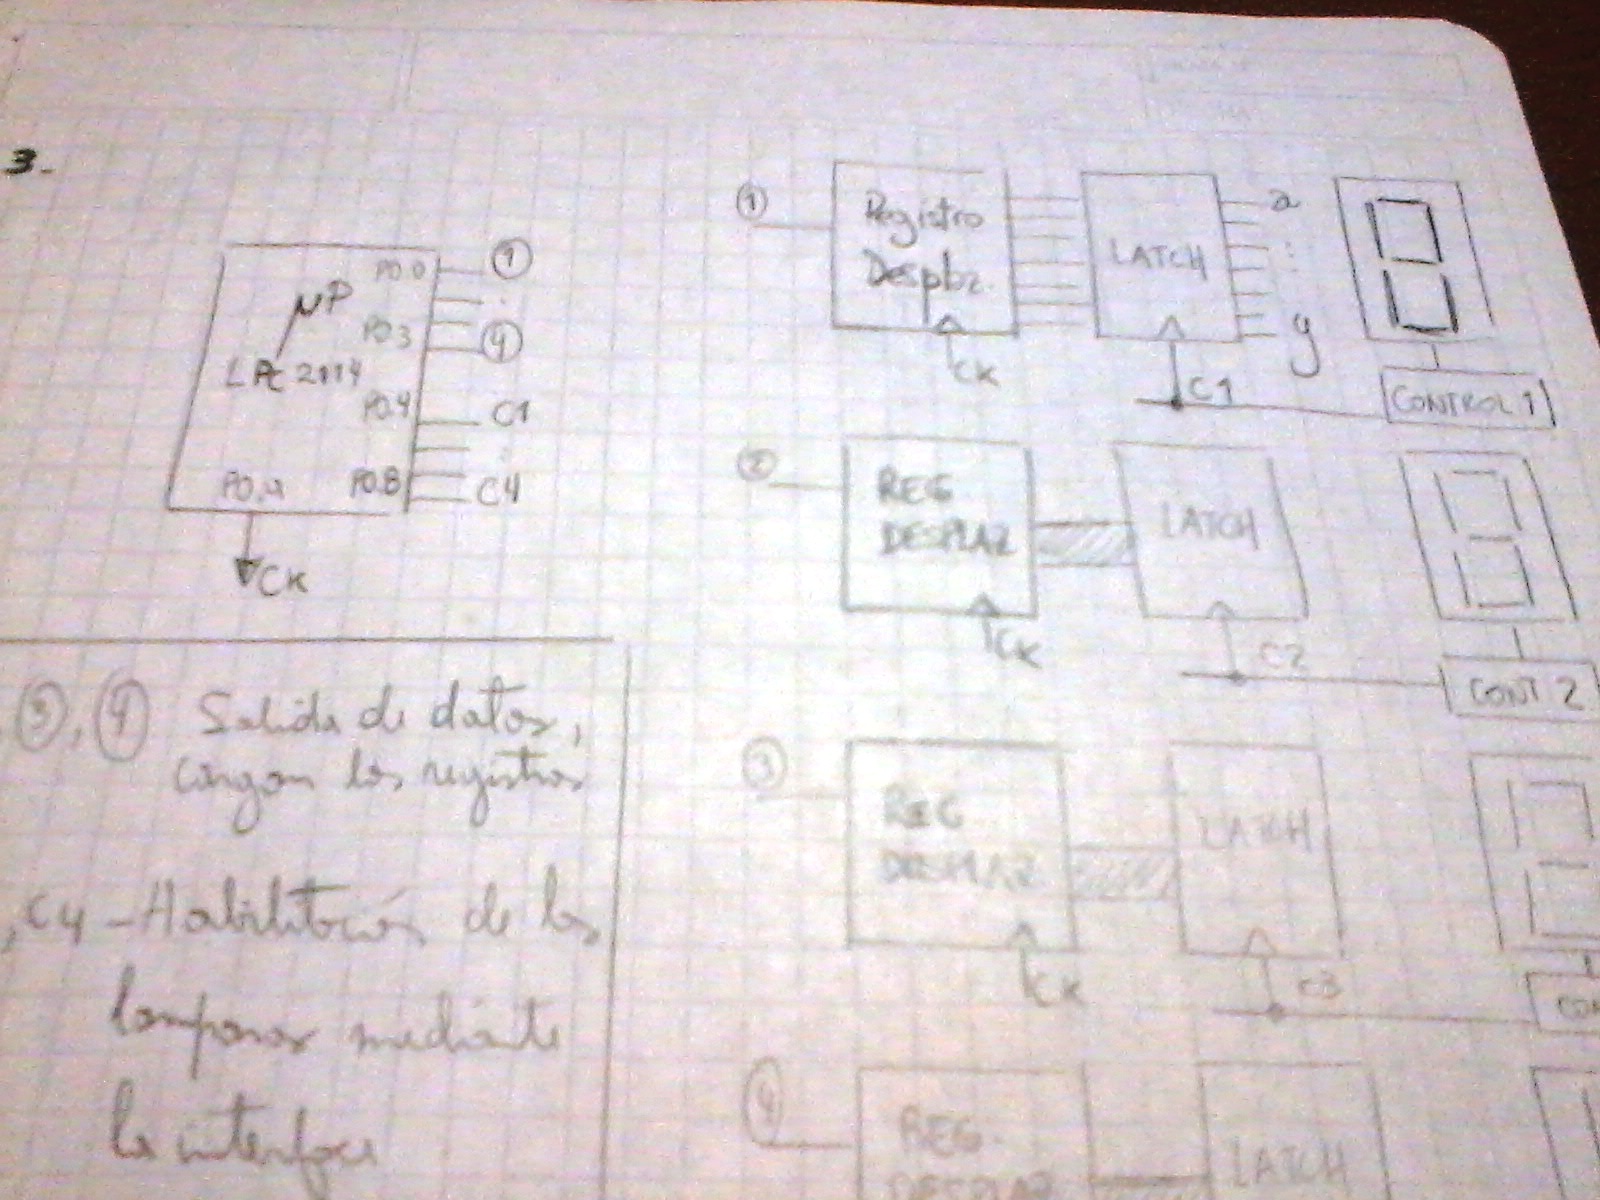 3-
µP
LPC 2114
P0.0
①
P0.3
④
P0.4
C1
P0.8
C4
CK
③, ④ Salida de datos,
cargan los registros
, C4 - Habilitación de los
lamparas mediante
la interface
①
Registro
Desplaz.
CK
LATCH
C1
a
g
CONTROL 1
②
REG
DESPLAZ
CK
LATCH
C2
CONT 2
③
REG
DESPLAZ
CK
LATCH
C3
CON
④
REG.
DESPLAZ
LATCH